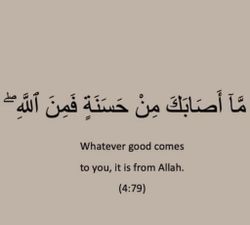 مَّآ أَصَابَكَ مِنْ حَسَنَةٍ فَمِنَ ٱللَّهِ ۖ
Whatever good comes
to you, it is from Allah.
(4:79)